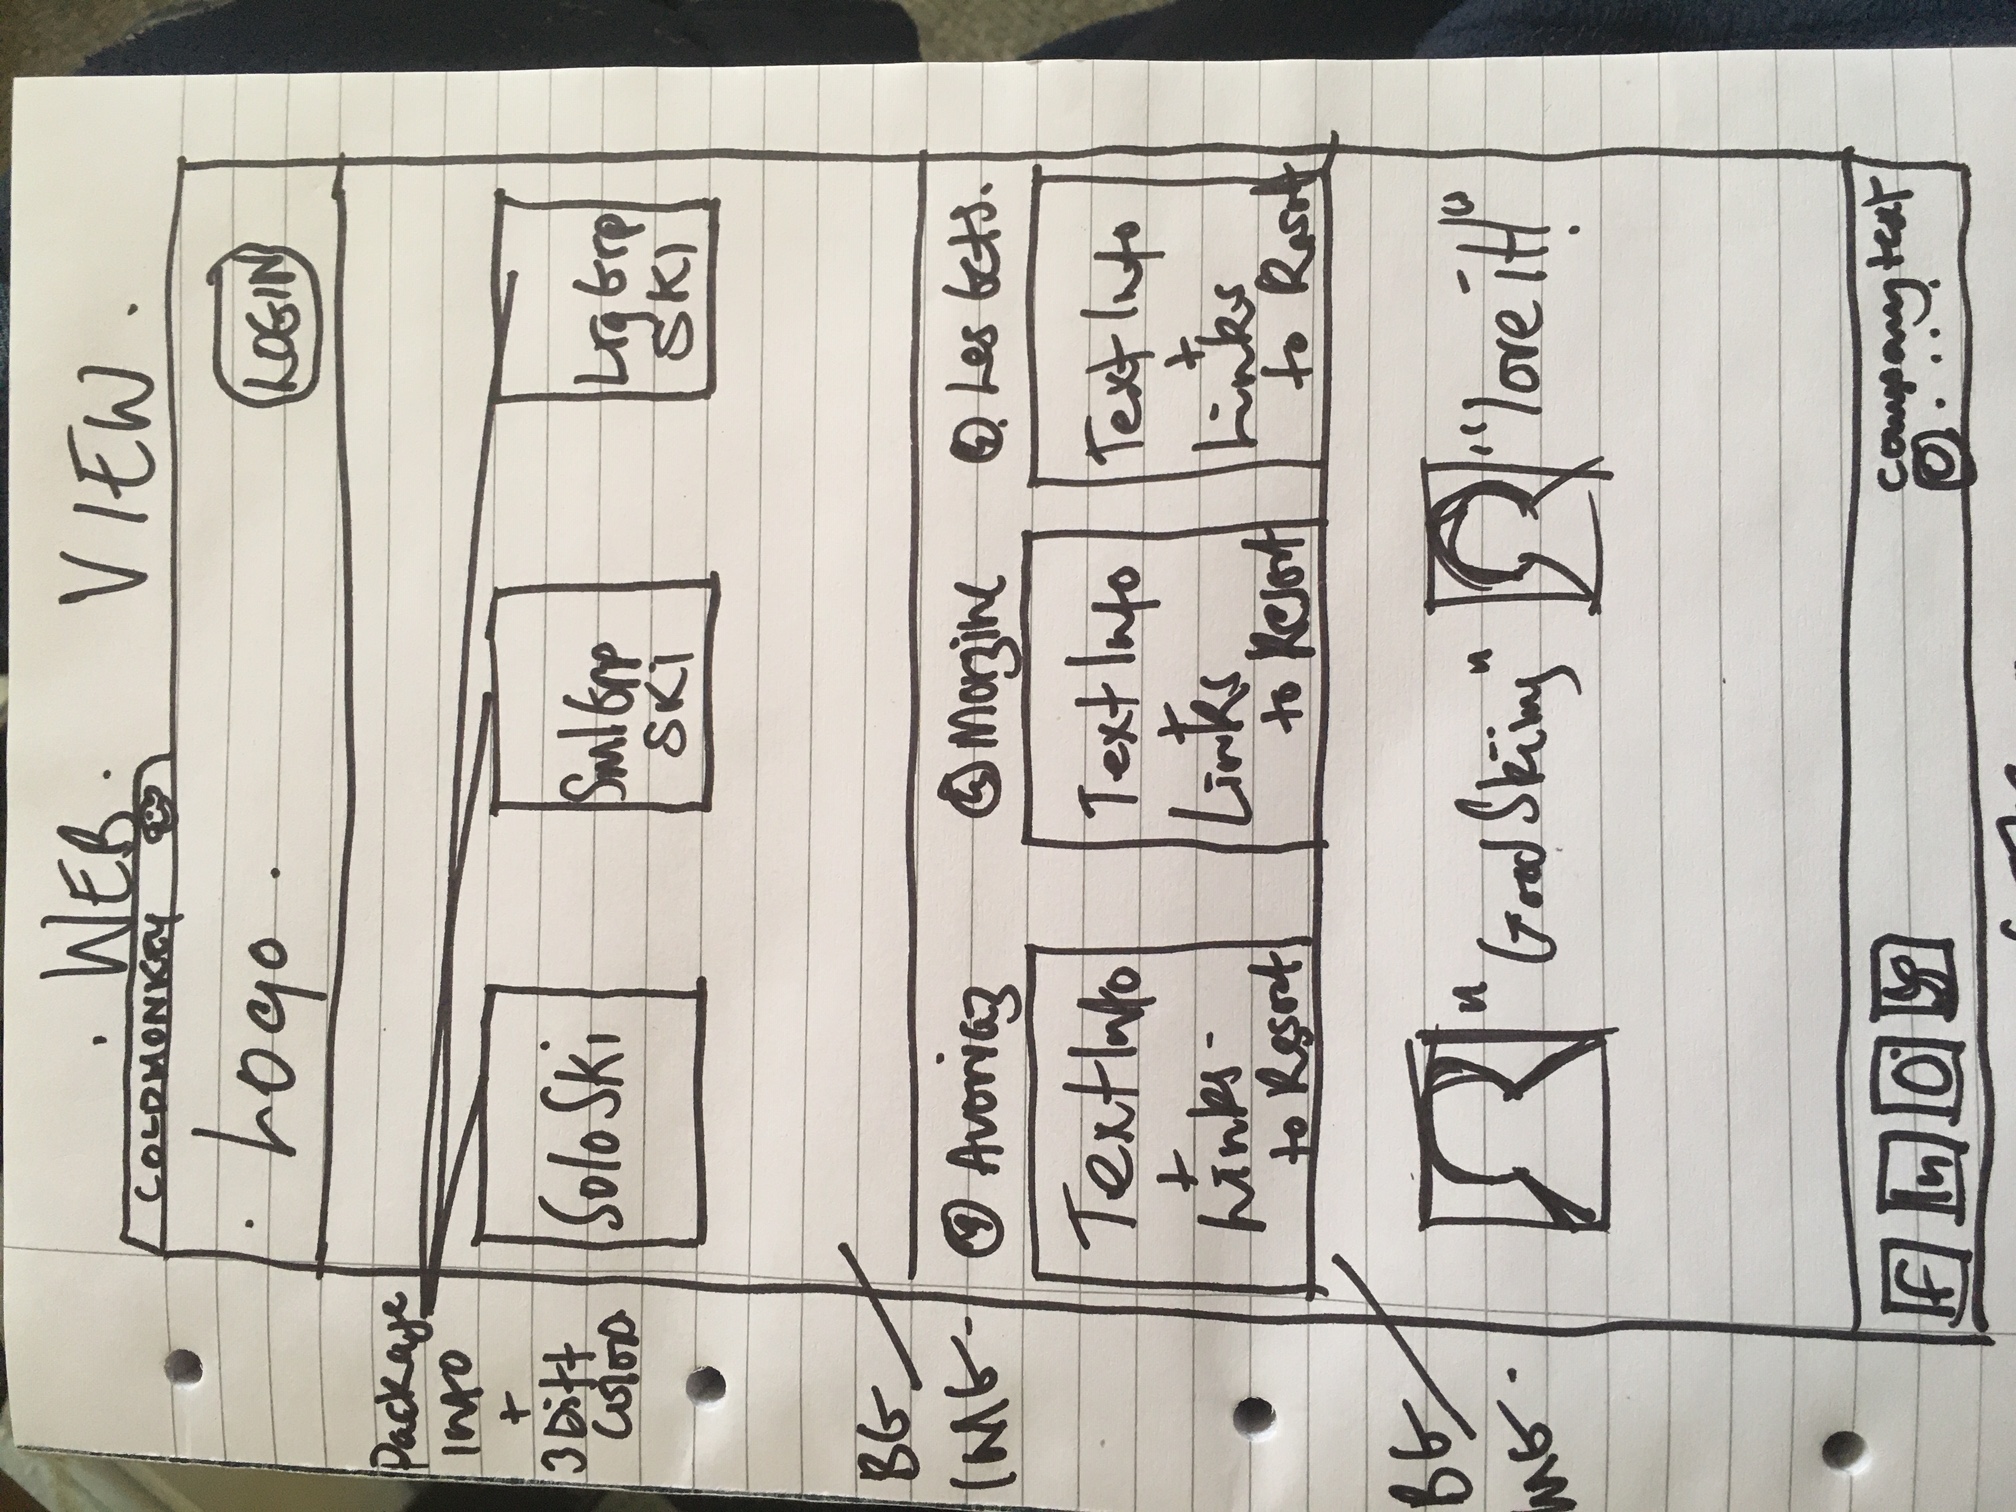 . WEB. VIEW.
COLDMONKEY
. Logo .
LOGIN
Package
INFO
+
3 Diff
Colors
Solo Ski
Sml Grp
SKI
Lrg Grp
SKI
BG
IMG -
Avoriaz
Morzine
Les Gets.
Text Info
+
Links -
to Resort
Text Info
+
Links
to Resort
Text Info
+
Links
to Resort
BG
IMG -
"Good Skiing"
"love it!"
f
In
company text